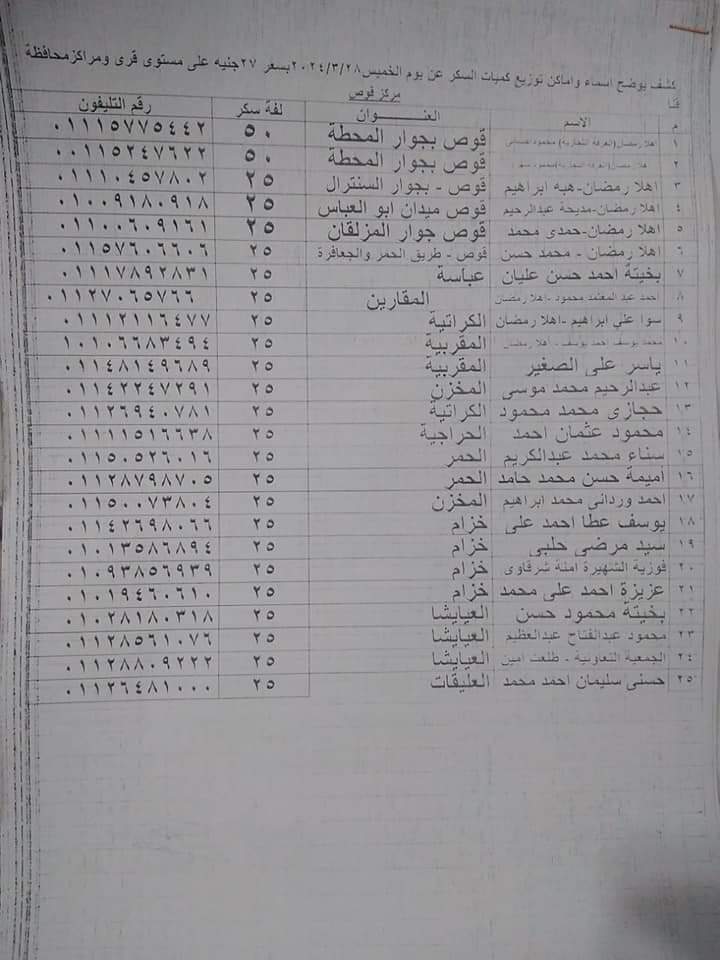 كشف يوضح اسماء واماكن توزيع كميات السكر عن يوم الخميس ٢٠٢٤/٣/٢٨ بسعر ٢٧ جنيه على مستوى قرى ومراكز محافظة
قنا
مركز قوص
م الاسم العنـــــوان لفة سكر رقم التليفون
١ اهلا رمضان (الغرفة التجارية) محمود قوص بجوار المحطة ٥٠ ٠١١١٥٧٧٥٤٤٢
٢ اهلا رمضان (الغرفة التجارية) قوص بجوار المحطة ٥٠ ٠١١٥٢٤٧٦٢٢
٣ اهلا رمضان-هبه ابراهيم قوص - بجوار السنترال ٢٥ ٠١١١٠٤٥٧٨٠٢
٤ اهلا رمضان-مديحة عبدالرحيم قوص ميدان ابو العباس ٢٥ ٠١٠٠٩١٨٠٩١٨
٥ اهلا رمضان-حمدى محمد قوص جوار المزلقان ٢٥ ٠١١٠٠٦٠٩١٦١
٦ اهلا رمضان - محمد حسن قوص - طريق الحمر والجعافرة ٢٥ ٠١١٥٧٦٠٦٦٠٦
٧ بخيتة احمد حسن عليان عباسة ٢٥ ٠١١١٧٨٩٢٨٣١
٨ احمد عبد المعتمد محمود -اهلا رمضان المقارين ٢٥ ٠١١٢٧٠٦٥٧٦٦
٩ سوا علي ابراهيم -اهلا رمضان الكراتية ٢٥ ٠١١١٢١١٦٤٧٧
١٠ محمد يوسف احمد يوسف - اهلا رمضان المقربية ٢٥ ١٠١٠٦٦٨٣٤٩٤
١١ ياسر على الصغير المقربية ٢٥ ٠١١٤٨١٤٩٦٨٩
١٢ عبدالرحيم محمد موسى المخزن ٢٥ ٠١١٤٢٢٤٧٢٩١
١٣ حجازى محمد محمود الكراتية ٢٥ ٠١١٢٦٩٤٠٧٨١
١٤ محمود عثمان احمد الحراجية ٢٥ ٠١١١١٥١٦٦٣٨
١٥ سناء محمد عبدالكريم الحمر ٢٥ ٠١١٥٠٥٢٦٠١٦
١٦ اميمة حسن محمد حامد الحمر ٢٥ ٠١١٢٨٧٩٨٧٠٥
١٧ احمد وردانى محمد ابراهيم المخزن ٢٥ ٠١١٥٠٠٧٣٨٠٤
١٨ يوسف عطا احمد على خزام ٢٥ ٠١١٤٢٦٩٨٠٦٦
١٩ سيد مرضى حلبى خزام ٢٥ ٠١٠١٣٥٨٦٨٩٤
٢٠ فوزية الشهيرة امنة شرقاوى خزام ٢٥ ٠١٠٩٣٨٥٦٩٣٩
٢١ عزيزة احمد على محمد خزام ٢٥ ٠١٠١٩٤٦٠٦١٠
٢٢ بخيتة محمود حسن العيايشا ٢٥ ٠١٠٢٨١٨٠٣١٨
٢٣ محمود عبدالفتاح عبدالعظيم العيايشا ٢٥ ٠١١٢٨٥٦١٠٧٦
٢٤ الجمعية التعاونية - طلعت امين العيايشا ٢٥ ٠١١٢٨٨٠٩٢٢٢
٢٥ حسنى سليمان احمد محمد العليقات ٢٥ ٠١١٢٦٤٨١٠٠٠